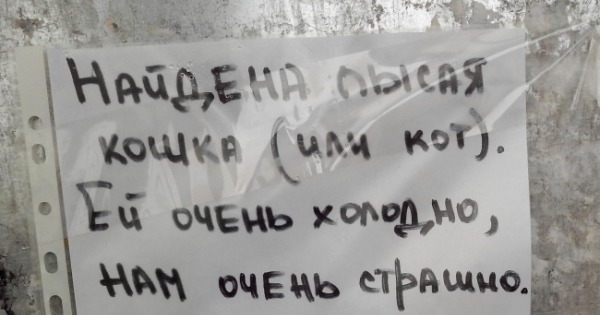 Найдена лысая
кошка (или кот).
Ей очень холодно,
нам очень страшно.